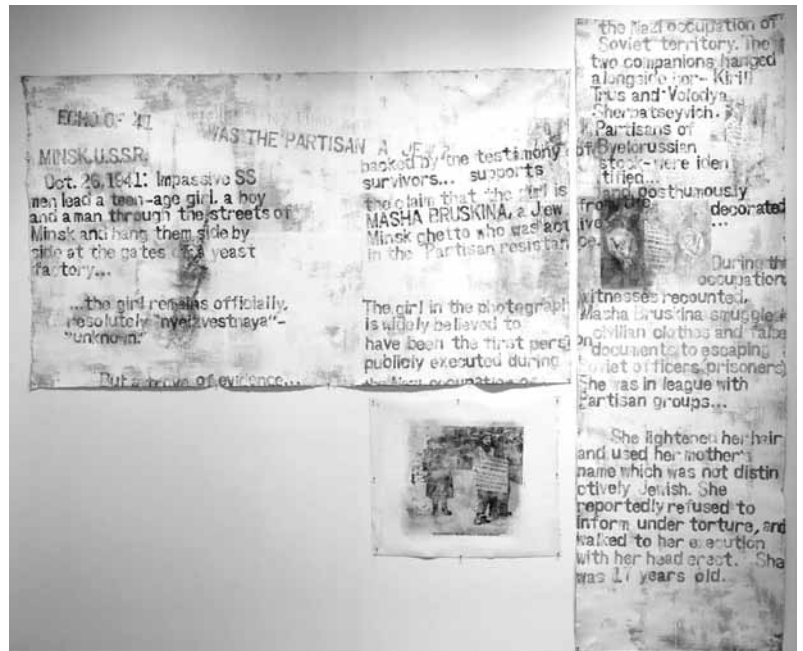 ECHO OF '41
WAS THE PARTISAN A JEW?
MINSK, U.S.S.R.
Oct. 26, 1941: Impassive SS
men lead a teen-age girl, a boy
and a man through the streets of
Minsk and hang them side by
side at the gates of a yeast
factory...
...the girl remains officially,
resolutely "nyeizvestnaya"-
"unknown."
But a trove of evidence...
backed by the testimony of
survivors... supports
the claim that the girl is
MASHA BRUSKINA, a Jew from the
Minsk ghetto who was active
in the Partisan resistance.
The girl in the photograph
is widely believed to
have been the first person
publicly executed during
the Nazi occupation of
the Nazi occupation of
Soviet territory. The
two companions hanged
alongside her- Kirill
Trus and Volodya
Sherbatseyvich.
Partisans of
Byelorussian
stock-were iden
tified...
and posthumously
decorated
...
During the
occupation,
witnesses recounted,
Masha Bruskina smuggled
civilian clothes and false
documents to escaping
Soviet officers (prisoners)
She was in league with
Partisan groups...
She lightened her hair
and used her mother's
name which was not distin
ctively Jewish. She
reportedly refused to
inform under torture, and
walked to her execution
with her head erect. She
was 17 years old.